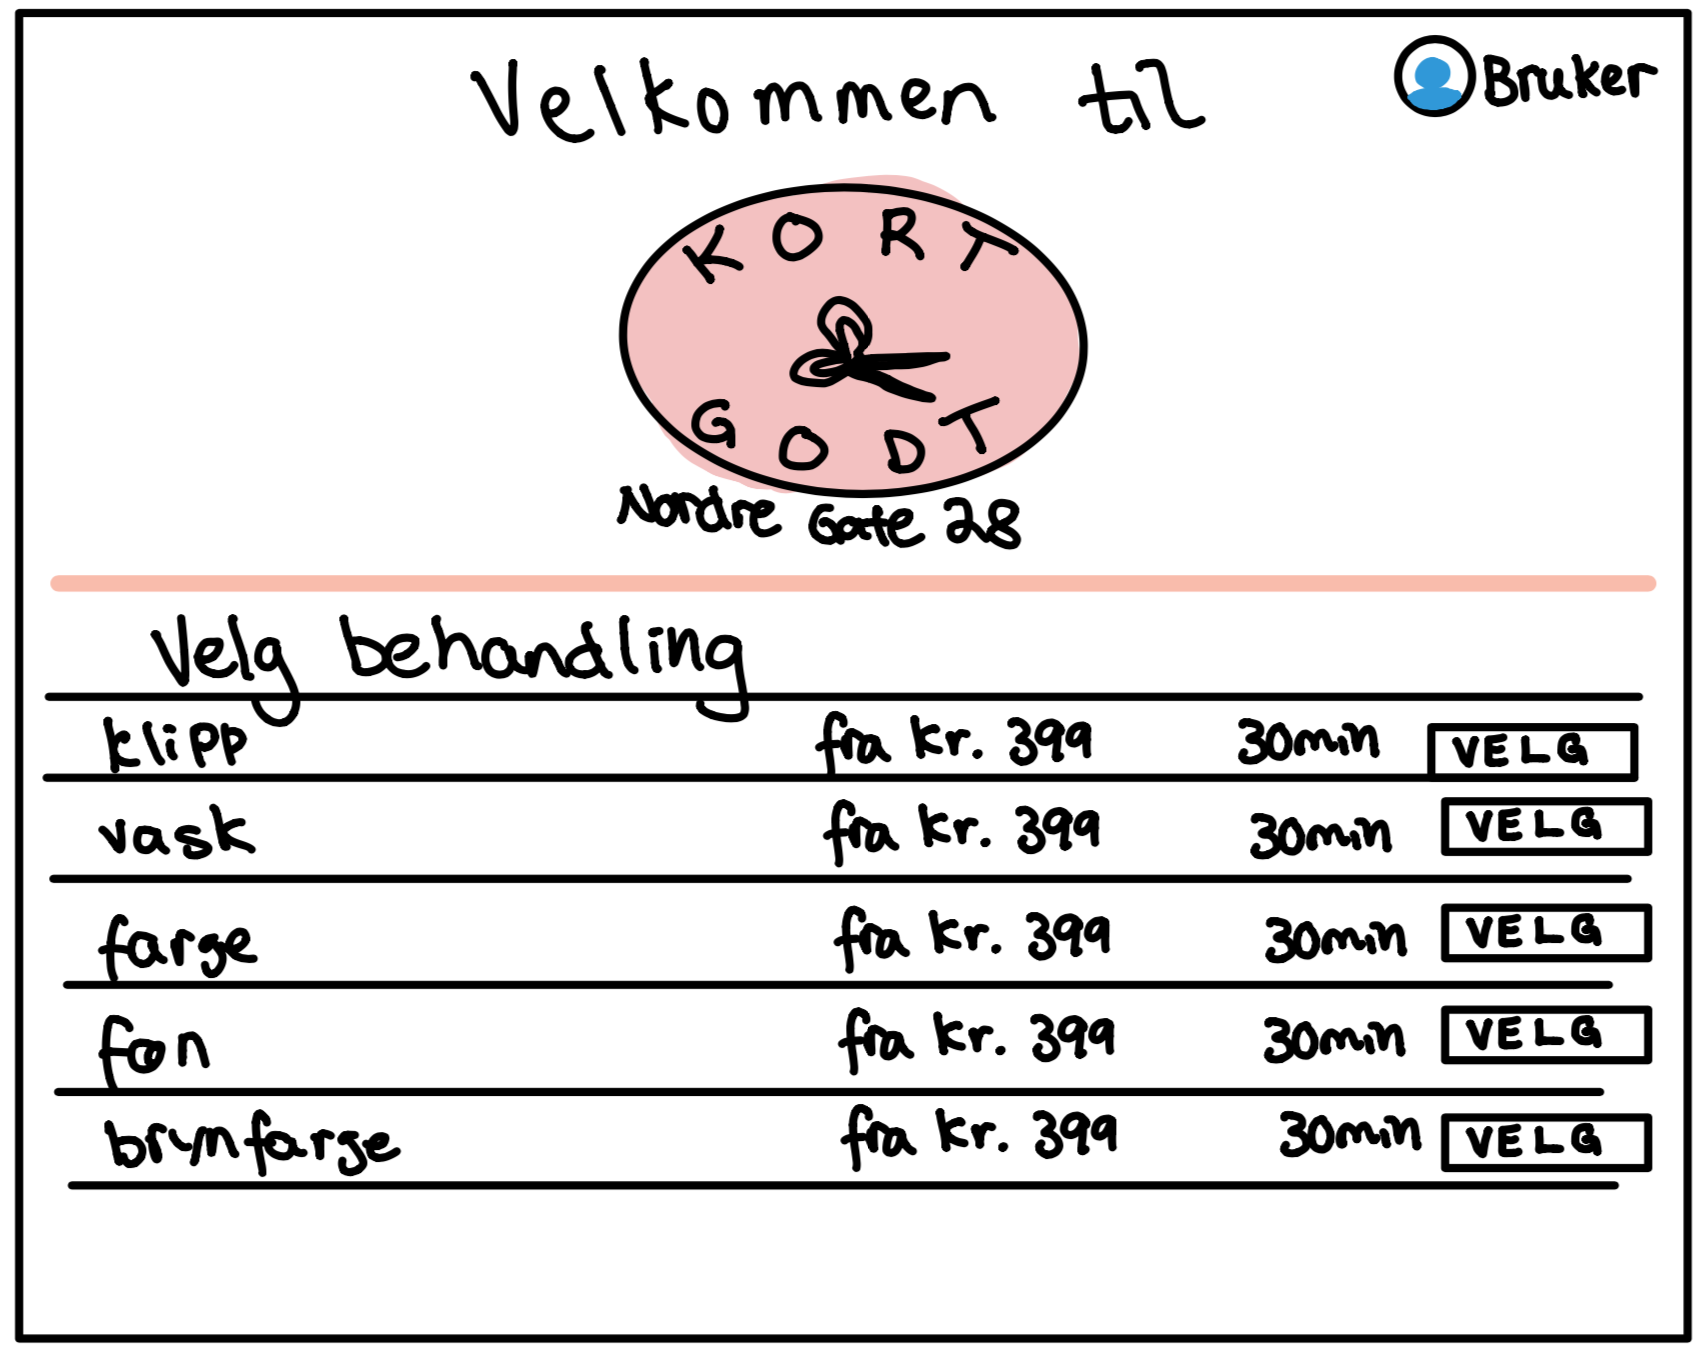 Velkommen til
Bruker
KORT
GODT
Nordre Gate 28
Velg behandling
klipp fra kr. 399 30min VELG
vask fra kr. 399 30min VELG
farge fra kr. 399 30min VELG
føn fra kr. 399 30min VELG
brynfarge fra kr. 399 30min VELG